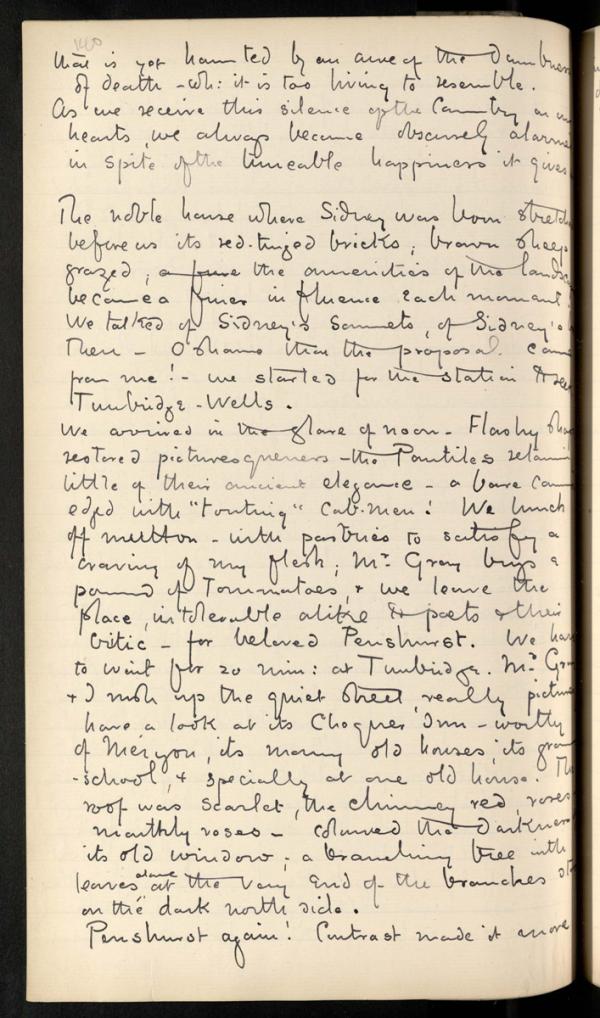 140
that is yet haunted by an awe of the Dumbness
of death - wh: it is too living to resemble.
As we receive this silence of the Country in our
hearts, we always become obscurely alarmed
in spite of the tuneable happiness it gives
The noble house where Sidney was born stretch
before us its red-tinged bricks; brown sheep
grazed; the amenities of the landsc
became a finer influence each moment.
We talked of Sidney's Sonnets, of Sidney's
Then - O shame that the proposal came
from me! - we started for the station & see
Tunbridge-Wells.
We arrived in the glare of noon - Flashy sho
restored picturesqueness - the Pantiles retaini
little of their ancient elegance - a bare Com
edged with "touting" Cab-men! We lunch
off mutton - with pastries to satisfy a
craving of my flesh; Mr Gray buys a
pound of Tommatoes, & we leave the
place, intolerable alike to poets & their
Critic - for beloved Penshurst. We have
to wait for 20 min: at Tunbridge. Mr Gray
& I rush up the quiet Street, really pictur
have a look at its Chequer Inn - worthy
of Meryon, its many old houses, its gram
-school, & specially at one old house. The
roof was scarlet, the chimney red, roses
monthly roses - coloured the darkness
its old window; a branching tree with
leaves alone at the very end of the branches sto
on the dark north side.
Penshurst again! Contrast made it more